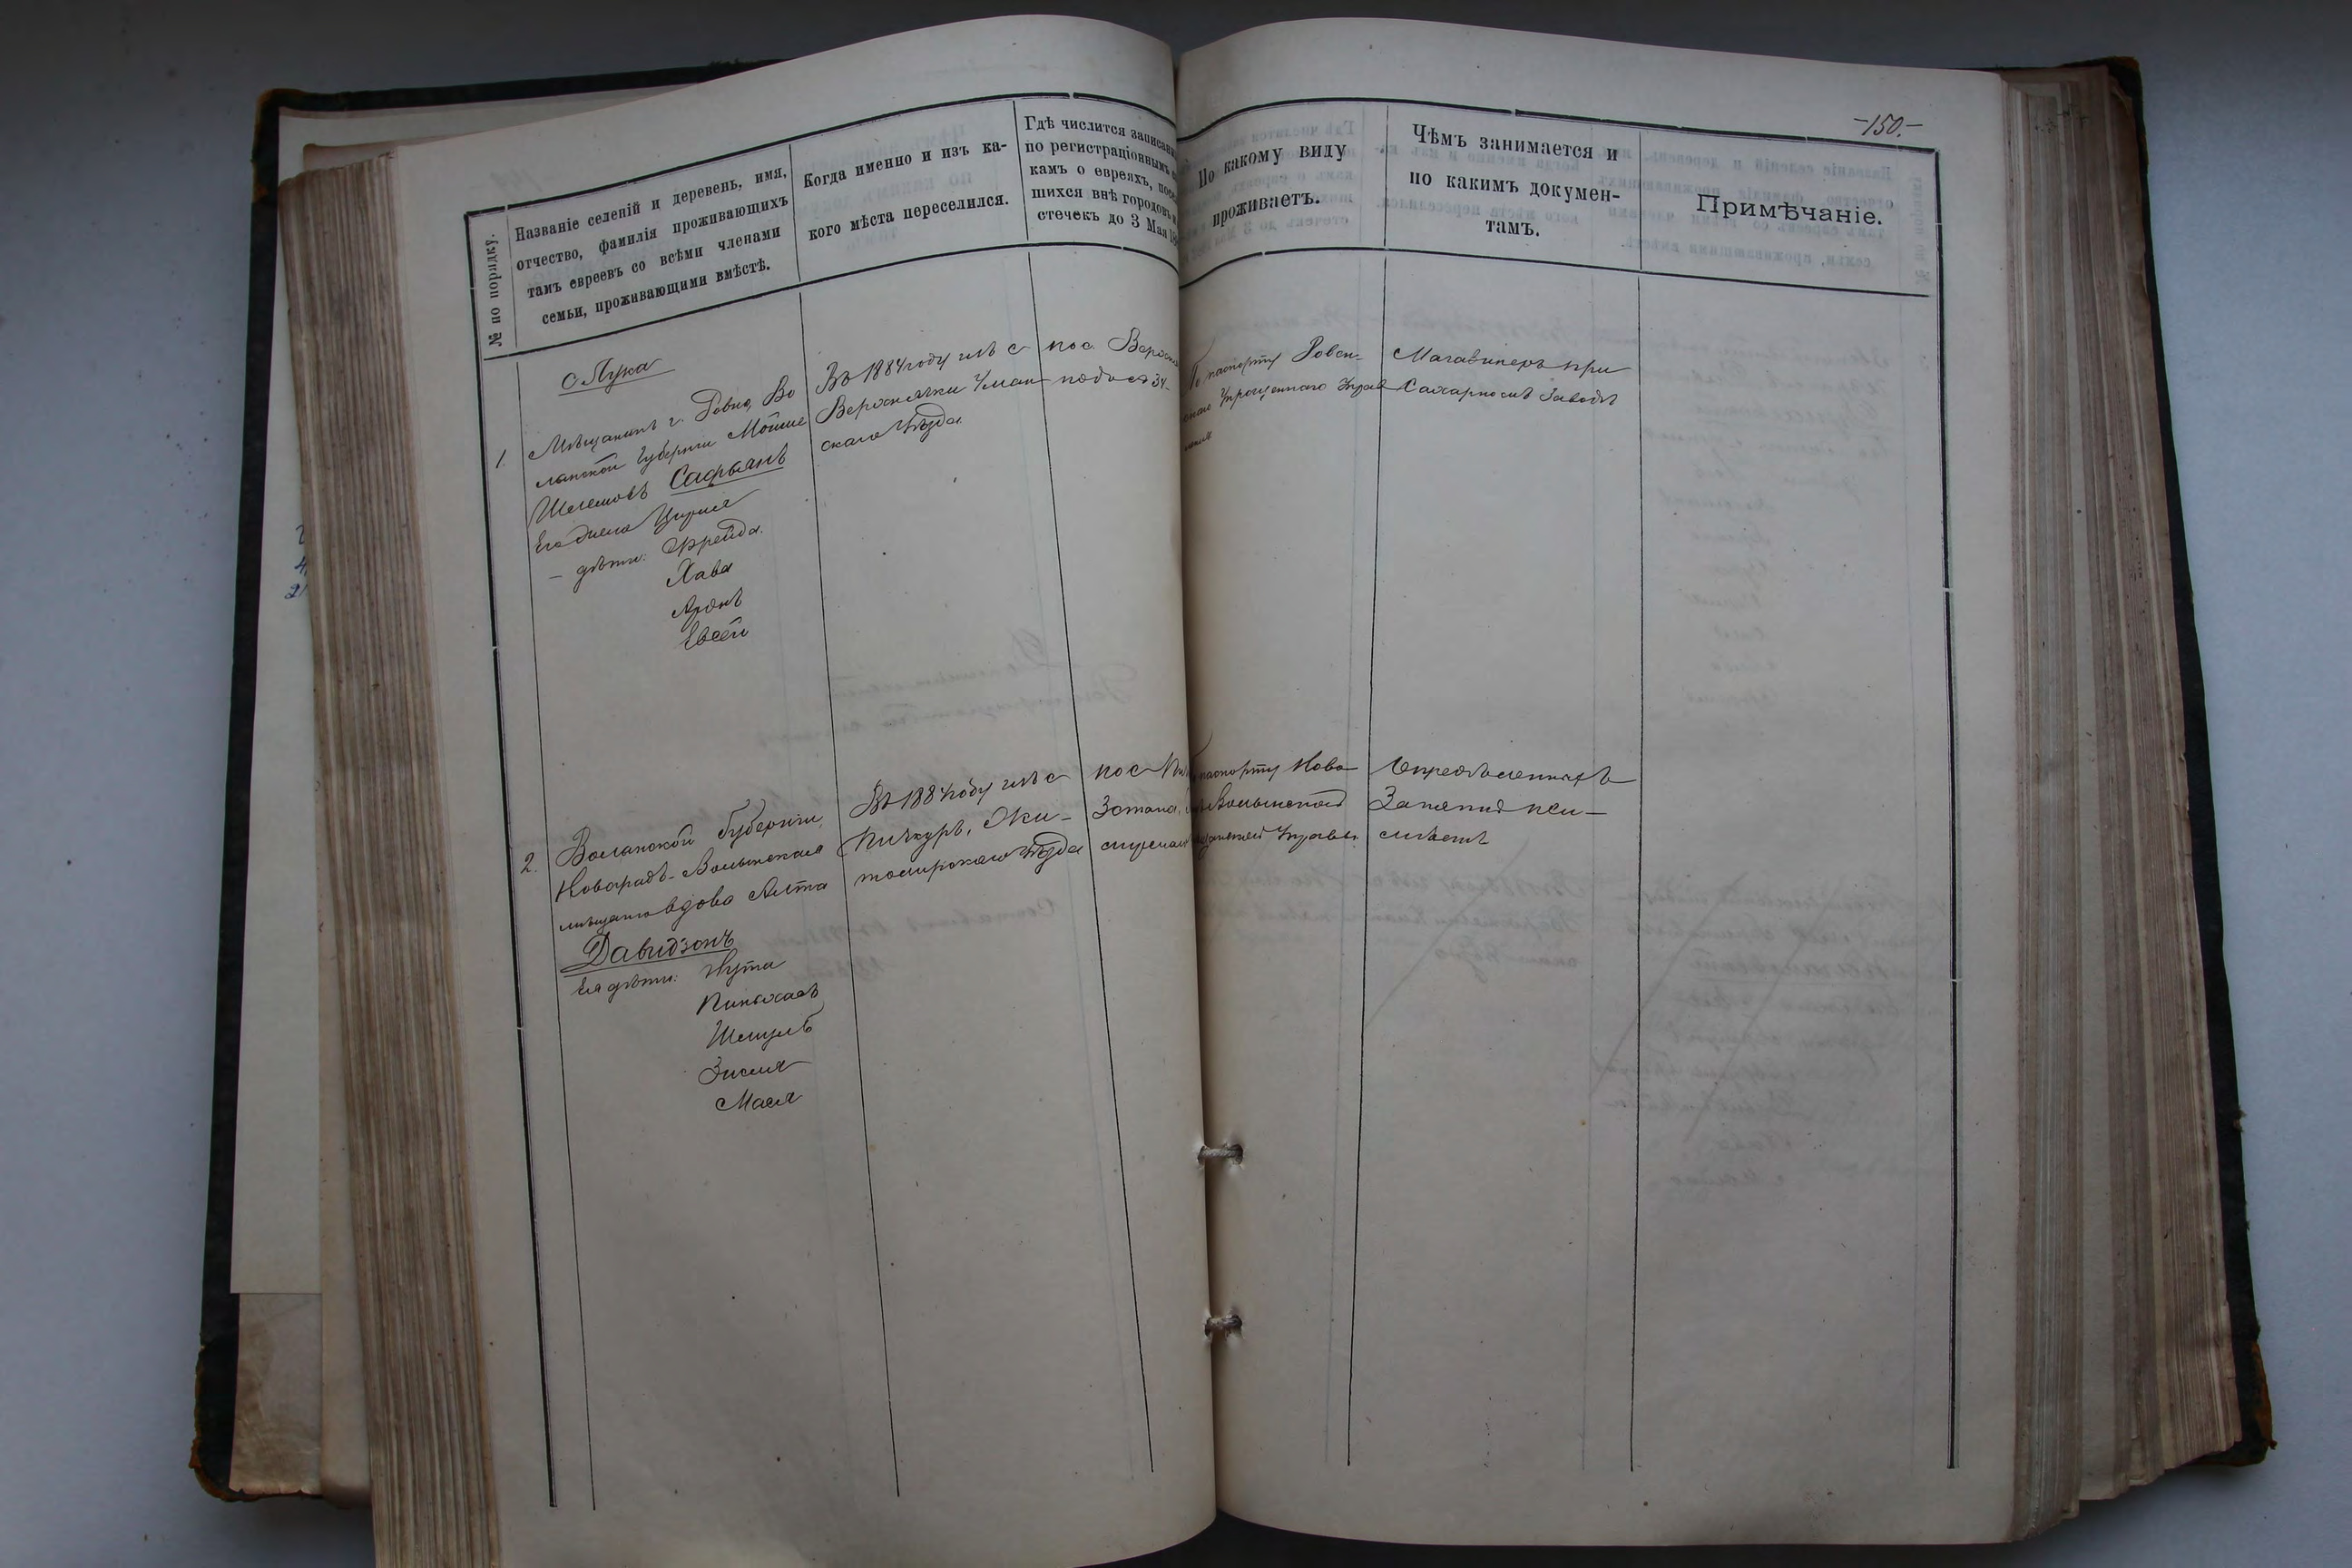 -150.-
№ по порядку.
Названіе селеній и деревень, имя,
отчество, фамилія проживающихъ
тамъ евреевъ со всѣми членами
семьи, проживающими вмѣстѣ.
Когда именно и изъ ка-
кого мѣста переселился.
Гдѣ числится записан
по регистраціоннымъ
камъ о евреяхъ, посе
шихся внѣ городовъ
стечекъ до 3 Мая 18
По какому виду
проживаетъ.
Чѣмъ занимается и
по какимъ докумен-
тамъ.
Примѣчаніе.
с Лука
1.
Мѣщанинъ г. Ровно, Во
лынской Губерніи Мошие
Шлемовъ Сафьянъ
Его жена Цирля
— дѣти: Фрейда.
Хава
Аронъ
Евсей
Въ 1884 году изъ с
Верхнячки Уман
скаго Уѣзда
по с. Верхня
подъ № 34.
По паспорту Ровен-
Упрощеннаго Управ
Магазинеръ при
Сахарномъ Заводѣ
2.
Волынской Губерніи,
Новоградъ-Волынская
мѣщанка вдова
Давидзонъ
Ея дѣти: Нута
Пинхасъ
Шмуль
Зисля
Мася
Въ 1884 году изъ с
Пичкуръ, Жи-
томирскаго Уѣзда
по с
паспорту Ново
Волынской
Управы.
Опредѣленныхъ
Занятій не и-
мѣетъ